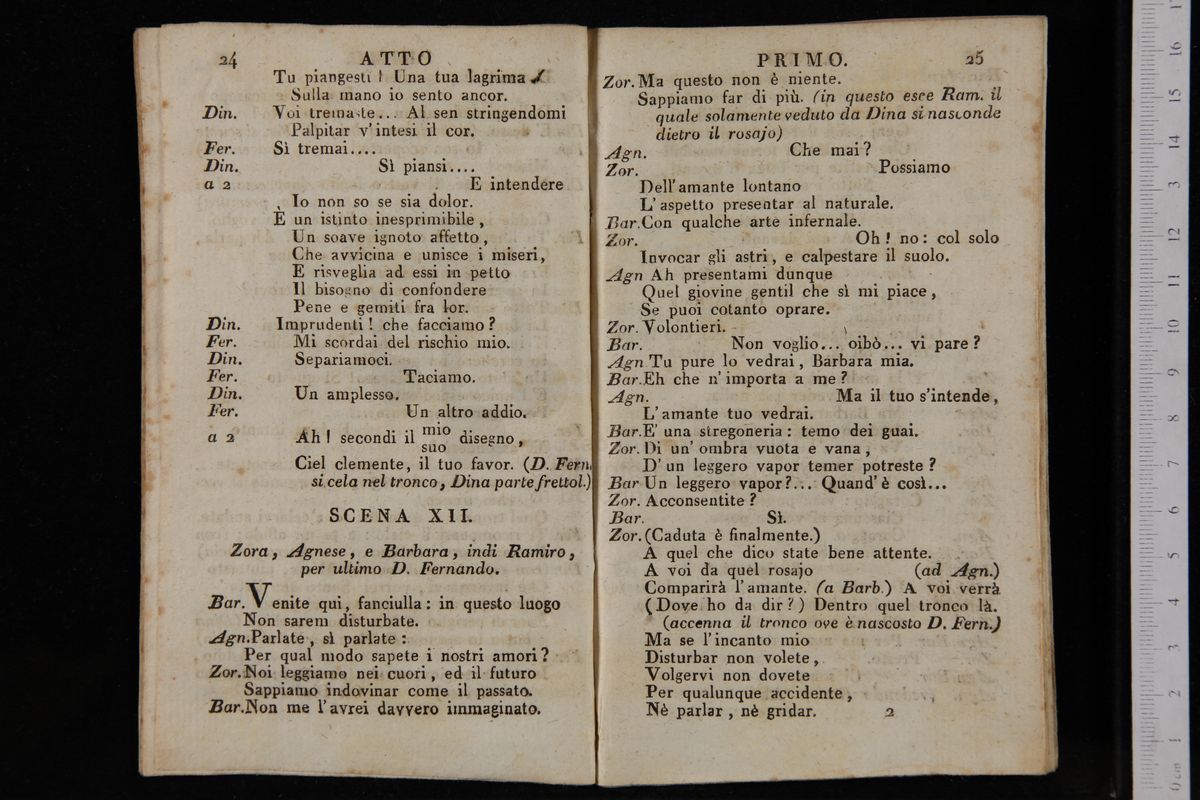 24 ATTO
Tu piangesti! Una tua lagrima
Sulla mano io sento ancor.
Din. Voi tremaste... Al sen stringendomi
Palpitar v'intesi il cor.
Fer. Sì tremai....
Din. Sì piansi....
a 2 E intendere
Io non so se sia dolor.
È un istinto inesprimibile,
Un soave ignoto affetto,
Che avvicina e unisce i miseri,
E risveglia ad essi in petto
Il bisogno di confondere
Pene e gemiti fra lor.
Din. Imprudenti! che facciamo?
Fer. Mi scordai del rischio mio.
Din. Separiamoci.
Fer. Taciamo.
Din. Un amplesso.
Fer. Un altro addio.
a 2 Ah! secondi il mio disegno,
suo
Ciel clemente, il tuo favor. (D. Fern.
si cela nel tronco, Dina parte frettol.)
SCENA XII.
Zora, Agnese, e Barbara, indi Ramiro,
per ultimo D. Fernando.
Bar. Venite qui, fanciulla: in questo luogo
Non sarem disturbate.
Agn. Parlate, sì parlate:
Per qual modo sapete i nostri amori?
Zor. Noi leggiamo nei cuori, ed il futuro
Sappiamo indovinar come il passato.
Bar. Non me l'avrei davvero immaginato.
PRIMO. 25
Zor. Ma questo non è niente.
Sappiamo far di più. (in questo esce Ram. il
quale solamente veduto da Dina si nasconde
dietro il rosajo)
Agn. Che mai?
Zor. Possiamo
Dell'amante lontano
L'aspetto presentar al naturale.
Bar. Con qualche arte infernale.
Zor. Oh! no: col solo
Invocar gli astri, e calpestare il suolo.
Agn Ah presentami dunque
Quel giovine gentil che sì mi piace,
Se puoi cotanto oprare.
Zor. Volontieri.
Bar. Non voglio... oibò... vi pare?
Agn Tu pure lo vedrai, Barbara mia.
Bar. Eh che n'importa a me?
Agn. Ma il tuo s'intende,
L'amante tuo vedrai.
Bar. E' una stregoneria: temo dei guai.
Zor. Di un'ombra vuota e vana,
D'un leggero vapor temer potreste?
Bar Un leggero vapor?... Quand'è così...
Zor. Acconsentite?
Bar. Sì.
Zor. (Caduta è finalmente.)
A quel che dico state bene attente.
A voi da quel rosajo (ad Agn.)
Comparirà l'amante. (a Barb.) A voi verrà
(Dove ho da dir?) Dentro quel tronco là.
(accenna il tronco ove è nascosto D. Fern.)
Ma se l'incanto mio
Disturbar non volete,
Volgervi non dovete
Per qualunque accidente,
Nè parlar, nè gridar. 2
0 cm 1 2 3 4 5 6 7 8 9 10 11 12 13 14 15 16 17